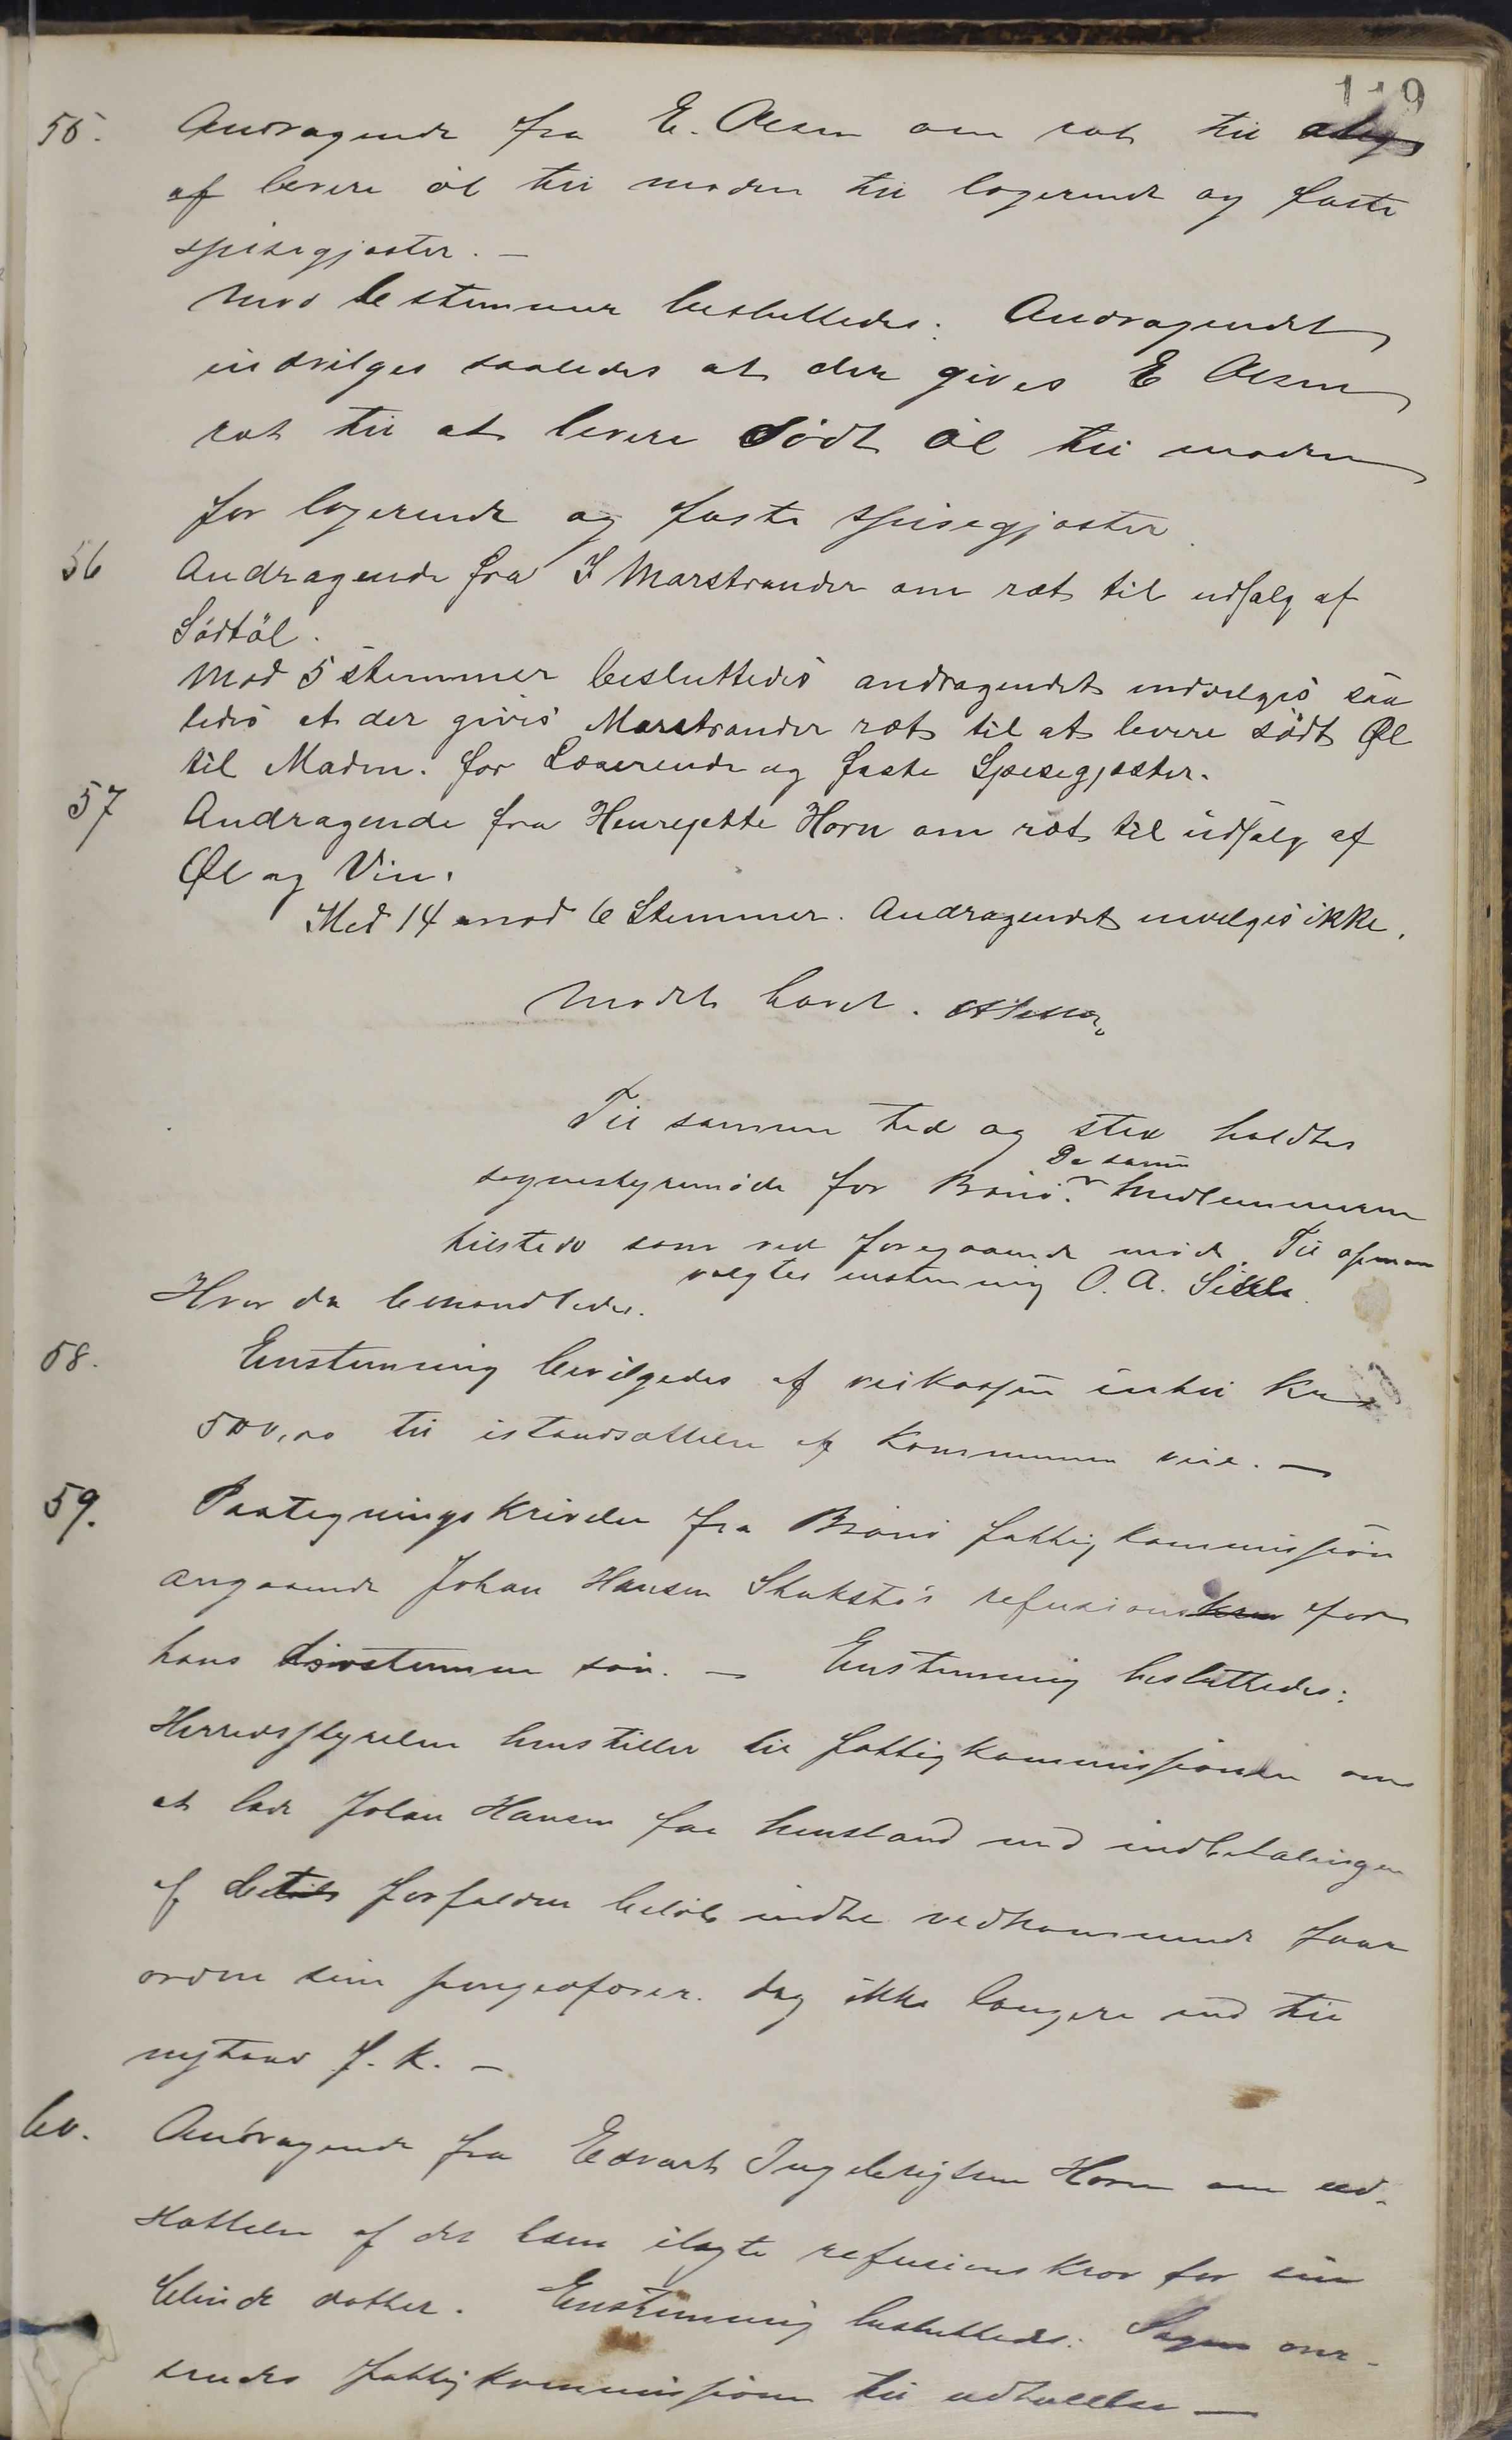 119
55. Andragende fra E. Olsen om ret til
af levere öl til maden til logerende og faste
spisegjæster. –
Mod 6 stemmer besluttedes: Andragendet
indvilges saaledes at der gives E Olsen
ret til at levere Södt öl til maden
for logerende og faste spisegjæster.
56 Andragende fra I Marstrander om ræt til udsalg af
Södtöl.
Mod 5 stemmer besluttedes andragendet indvelges saa
ledes at der gives Marstrander ræt til at levere södt Øl
til Maden. for Logerende og faste Spisegjæster.
57 Andragende fra Henrejette Horn om ræt til udsalg af
Øl og Vin.
Med 14 mod 6 Stemmer. Andragendet invelges ikke.
Mødet hævet.
Til samme tid og sted holdtes
De samme
sognestyremöde for Brönö. Medlemmerne
tilstede som ved foregaaende möde. Til opman
valgtes enstemmig O. A. Sikle.
Hvor da behandledes.
58. Enstemmig bevilgedes af veikassen indtil Kr
500,00 til istandsættelse af Kommunens veie. –
59. Paategningskrivelse fra Brönö fattigkommission
angaaende Johan Hansen Skakstö's refusionskrav for
hans døvstumme sön. – Enstemmig besluttedes:
Herredsstyrelsen henstiller til fattigkommissionen om
at lade Johan Hansen faa henstand med indbetalingen
af forfalden belöb indtil vedkommende faar
ordne sine pengeaffærer. dog ikke længere end til
nytaar f. k. –
60. Andragende fra Edvart Ingebrigtsen Horn om ud-
sættelse af det ham ilagte refusionskrav for sin
blinde datter. Enstemmig besluttedes: Sagen over-
sendes fattigkommissionen til udtalelse –